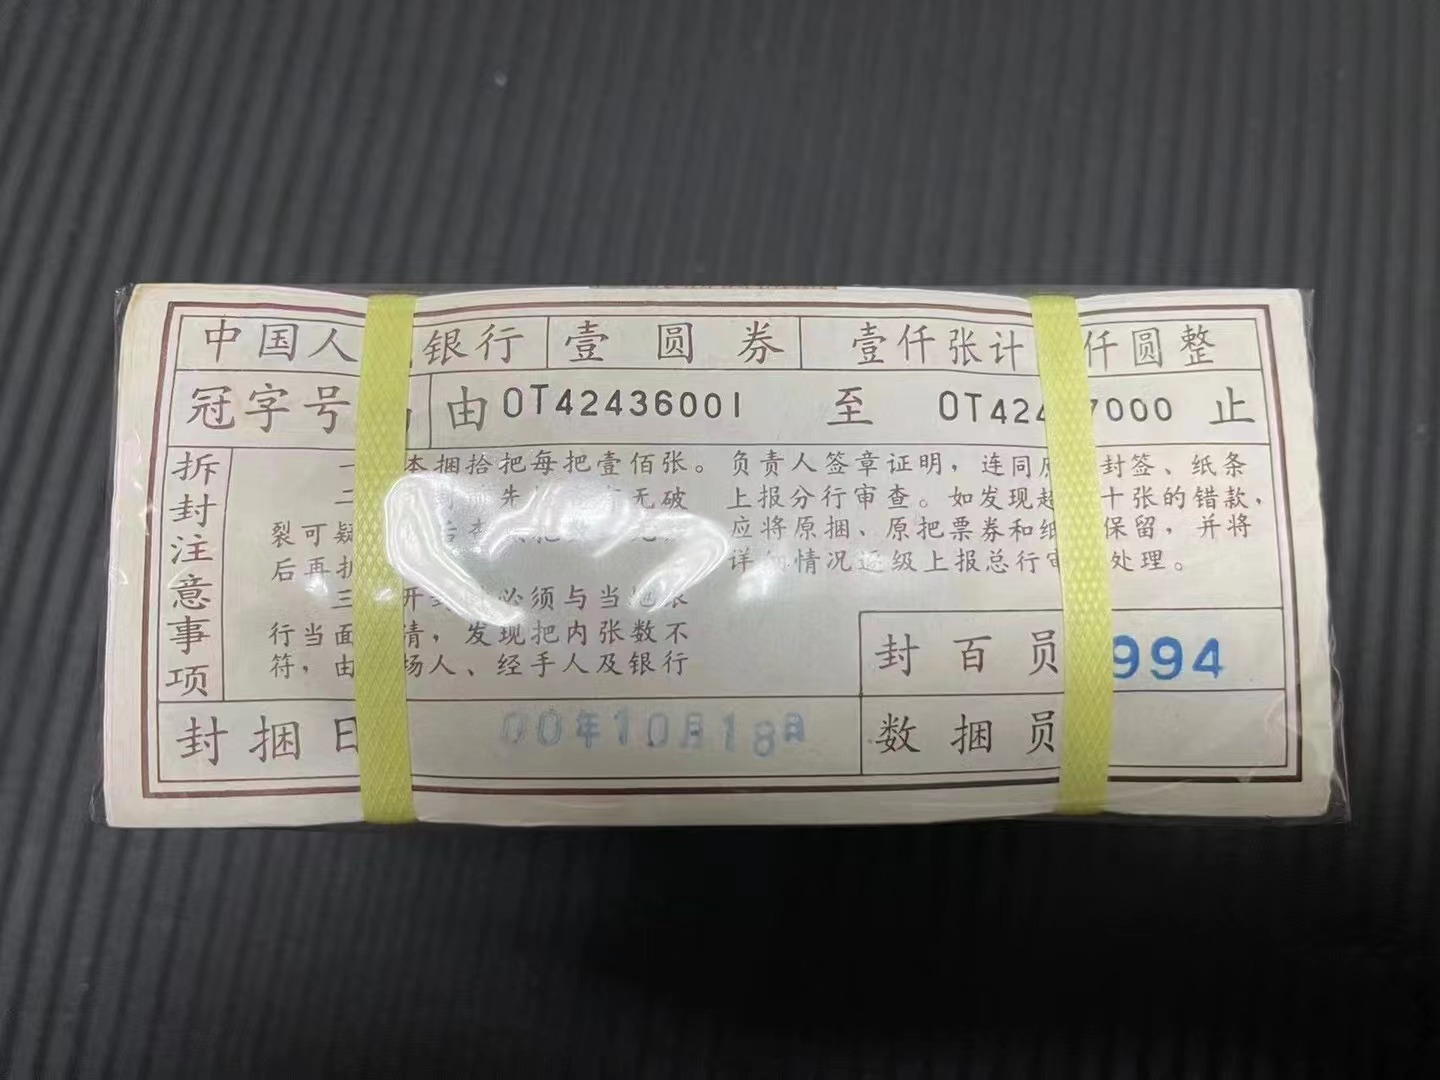 中国人 银行 壹圆券 壹仟张计 仟圆整
冠字号 由 OT42436001 至 OT424 7000 止
拆封注意事项
一 本捆拾把每把壹佰张。
二 封 先 无破
裂可疑
后再
三 开 必须与当地
行当面 清，发现把内张数不
符，由 场人、经手人及银行
负责人签章证明，连同 封签、纸条
上报分行审查。如发现超 十张的错款，
应将原捆、原把票券和 保留，并将
详 情况逐级上报总行审 处理。
封百员 994
封捆日 00年10月18日
数捆员